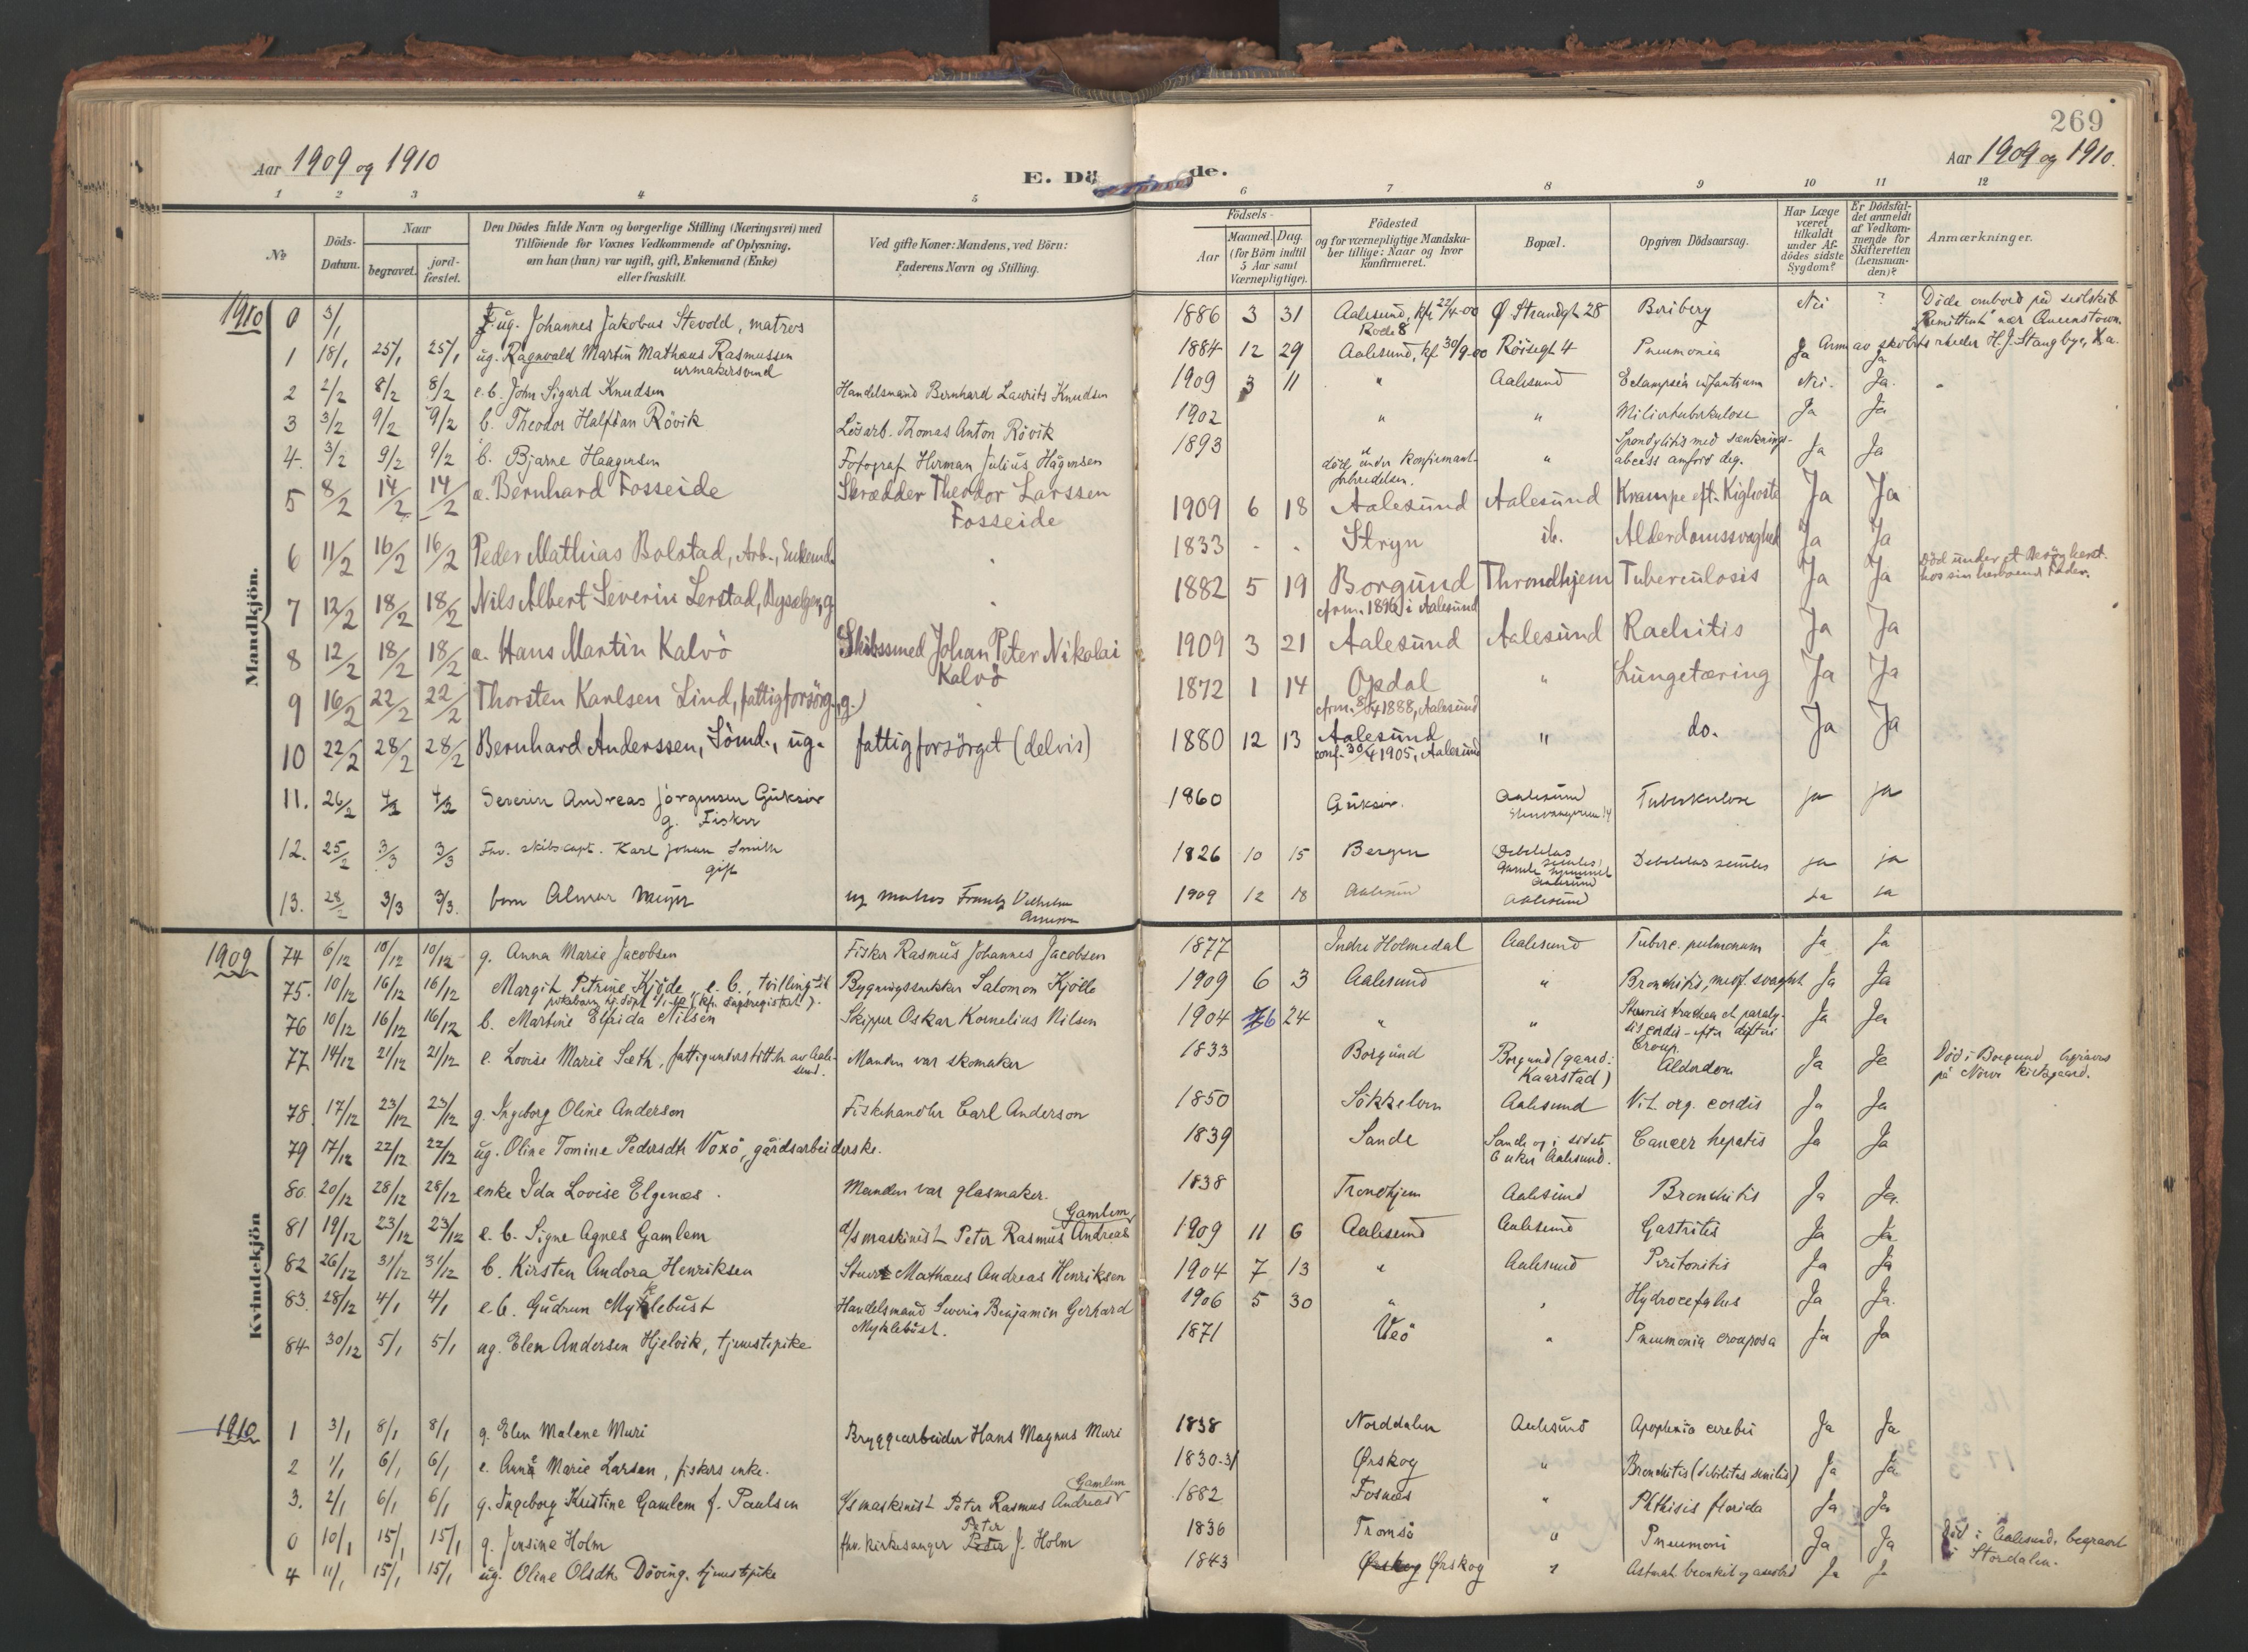 269
Aar 1909 og 1910
E. Döde.
Aar 1909 og 1910.
1 2 3 4 5 6 7 8 9 10 11 12
No
Döds-Datum.
Naar
begravet.
jord-fæstet.
Den Dödes fulde Navn og borgerlige Stilling (Næringsvei) med
Tilföiende for Voxnes Vedkommende af Oplysning,
om han (hun) var ugift, gift, Enkemand (Enke)
eller fraskilt.
Ved gifte Koner: Mandens, ved Börn:
Faderens Navn og Stilling.
Födsels-
Aar
Maaned. Dag
(for Börn indtil
5 Aar samt
Værnepligtige).
Födested
og for værnepligtige Mandska-
ber tillige: Naar og hvor
konfirmeret.
Bopæl.
Opgiven Dödsaarsag.
Har Læge
været
tilkaldt
under Af-
dödes sidste
Sygdom?
Er Dödsfal-
det anmeldt
af Vedkom-
mende for
Skifteretten
(Lensman-
den)?
Anmærkninger.
Mandkjön.
1910 0 3/1 ug. Johannes Jakobus Stevold, matros 1886 3 31 Aalesund, kfr 22/4-00 Rode 8 Ø. Strandgt 28 Beri bery Nei ? Döde ombord på seilskib "Remittent" nær Queenstown.
1 18/1 25/1 25/1 ug. Ragnvald Martin Mathæus Rasmussen urmakersvend 1884 12 29 Aalesund, kf 30/9-00 Röisegt 4 Pneumonia Ja Ja
2 2/2 8/2 8/2 e.b. John Sigard Knudsen Handelsmand Bernhard Laurits Knudsen 1909 3 11 " Aalesund Eclampsia infantium Nei. Ja.
3 3/2 9/2 9/2 b. Theodor Halfdan Rövik Lösarb. Thomas Anton Rövik 1902 " " Miliærtuberkulose Ja Ja
4. 3/2 9/2 9/2 b. Bjarne Haagensen Fotograf Herman Julius Hågensen 1893 " död under konfirmant-forberedelsen. " Spondylitis med sænknings-abcess Ja Ja
5 8/2 14/2 14/2 æ. Bernhard Fosseide Skrædder Theodor Larssen Fosseide 1909 6 18 Aalesund Aalesund Krampe eft. Kighoste Ja Ja
6 11/2 16/2 16/2 Peder Mathias Bolstad, Arb., Enkemd. 1833 - - Stryn ib. Alderdomssvaghed Ja Ja
7 12/2 18/2 18/2 Nils Albert Severin Lerstad, g 1882 5 19 Borgund cfrm. 1896 i Aalesund Throndhjem Tuberculosis Ja Ja Död under et Besög heri hos sin herboende Fader.
8 12/2 18/2 18/2 æ. Hans Martin Kalvö Skibssmed Johan Peter Nikolai Kalvö 1909 3 21 Aalesund Aalesund Rachitis Ja Ja
9 16/2 22/2 22/2 Thorsten Karlsen Lind, fattigforsörg., g.) 1872 1 14 Opdal cfrm. 8/4 1888, Aalesund " Lungetæring Ja Ja
10 22/2 28/2 28/2 Bernhard Anderssen, Sömd., ug. fattigforsörget (delvis) 1880 12 13 Aalesund conf. 30/4 1905, Aalesund " do. Ja Ja
11. 26/2 4/3 4/3 Severin Andreas Jörgensen Güksör g. Fisker 1860 Güksör. Aalesund Tuberkulose ja ja
12. 25/2 3/3 3/3 Fhv. skibscapt. Karl Johan Smith gift 1826 10 15 Bergen Gamle hjemmet Aalesund Debelitas seniles ja ja
13. 28/2 3/3 3/3. barn Almar Meyer ug matros Frantz Vilhelm 1909 12 18 Aalesund Aalesund ja ja
Kvindekjön
1909 74 6/12 10/12 10/12 g. Anna Marie Jacobsen Fisker Rasmus Johannes Jacobsen 1877 Indre Holmedal Aalesund Tuberc. pulmonum Ja Ja
75. 10/12 16/12 16/12 Margit Petrine Kjöde, e. b., tvilling Bygningssnekker Salomon Kjölle 1909 6 3 Aalesund " Bronchitis, medf. svaghet Ja Ja
76 10/12 16/12 16/12 b. Martine Elfrida Nilsen Skipper Oskar Kornelius Nilsen 1904 6 24 " " Stenosis trachea et paralysis cordis - efter difteri Croup. Ja Ja
77 14/12 21/12 21/12 e. Lovise Marie Sæth, fattigunderstöttet av Aalesund. Manden var skomaker 1833 Borgund Borgund (gaard: Kaarstad) Alderdom Ja Ja Död i Borgund begraves på Nörve kirkegaard.
78. 17/12 23/12 23/12 g. Ingeborg Oline Anderson Fiskehandler Carl Anderson 1850 Sökkelven Aalesund Vit. org. cordis Ja Ja
79 17/12 22/12 22/12 ug. Oline Tomine Pedersdtr Voxö, gårdsarbeiderske. 1839 Sande Sande og i sidste 6 uker Aalesund. Cancer hepatis Ja Ja
80. 20/12 28/12 28/12 enke Ida Lovise Elgenæs. Manden var glasmaker. 1838 Trondhjem Aalesund Bronchitis Ja Ja.
81 19/12 23/12 23/12 e. b. Signe Agnes Gamlem d/s maskinist Peter Rasmus Andreas Gamlem 1909 11 6 Aalesund Aalesund Gastritis Ja Ja
82 26/12 31/12 31/12 b. Kirsten Andora Henriksen Stuert Mathæus Andreas Henriksen 1904 7 13 " Aalesund Peritonitis Ja Ja
83. 28/12 4/1 4/1 e.b. Gudrun Myklebust Handelsmand Severin Benjamin Gerhard Myklebust. 1906 5 30 " " Hydrocefalus Ja Ja.
84 30/12 5/1 5/1 ug. Elen Andersen Hjelvik, tjenestepike 1871 Veö " Pneumonia crouposa Ja Ja
1910 1 3/1 8/1 8/1 g. Elen Malene Muri Bryggearbeider Hans Magnus Muri 1838 Norddalen Aalesund Apoplexia cerebri Ja Ja
2 1/1 6/1 6/1 e. Anna Marie Larsen, fiskers enke. 1830-31 Ørskog " Bronchitis (debilitas senilis) Ja Ja
3. 2/1 6/1 6/1 g. Ingeborg Kristine Gamlem f. Paulsen d/s maskinist Peter Rasmus Andreas Gamlem 1882 Fosnæs " Phthisis florida Ja Ja
0 10/1 15/1 15/1 g. Jensine Holm fhv. kirkesanger Peter J. Holm 1836 Tromsö " Pneumoni Ja Ja Död i Aalesund, begravet i Stordalen.
4 11/1 15/1 15/1 ug. Oline Olsdtr Döving. tjenestepike 1843 Ørskog Ørskog " Ja J